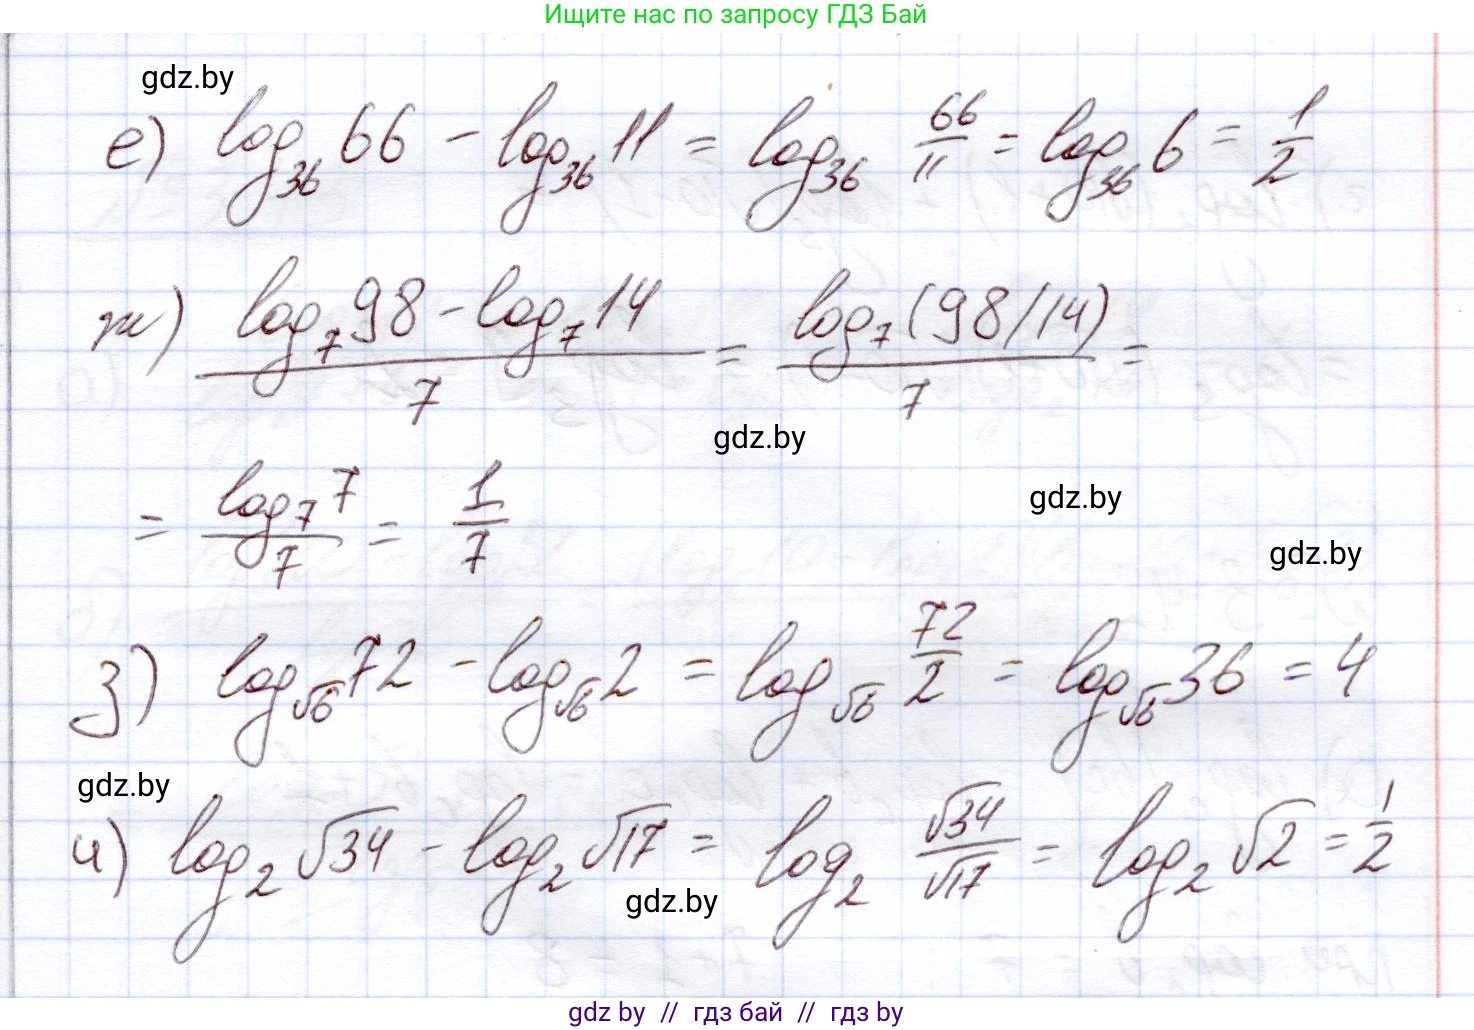 Ищите нас по запросу ГДЗ Бай
gdz.by
е) log₃₆ 66 - log₃₆ 11 = log₃₆ 66/11 = log₃₆ 6 = 1/2
ж) (log₇ 98 - log₇ 14)/7 = log₇ (98/14)/7 =
gdz.by
= log₇ 7/7 = 1/7
gdz.by
gdz.by
з) log_√6 72 - log_√6 2 = log_√6 72/2 = log_√6 36 = 4
gdz.by
и) log₂ √34 - log₂ √17 = log₂ √34/√17 = log₂ √2 = 1/2
gdz.by
gdz by // гдз бай // гдз by